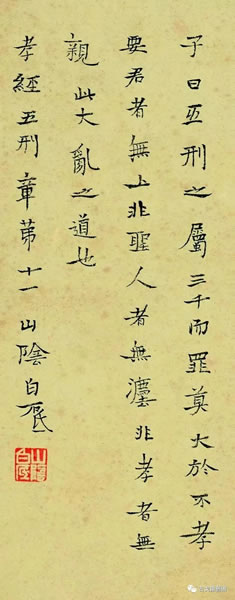 子曰五刑之屬三千而罪莫大於不孝
要君者無上非聖人者無灋非孝者無
親此大亂之道也
孝經五刑章苐十一 山陰白